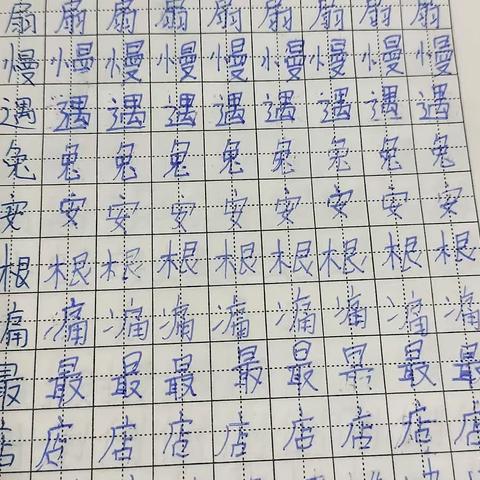 扇扇扇扇扇扇扇扇扇
慢慢慢慢慢慢慢慢慢
遇遇遇遇遇遇遇遇遇
兔兔兔兔兔兔兔兔兔
安安安安安安安安安
根根根根根根根根根
痛痛痛痛痛痛痛痛痛
最最最最最最最最最
店店店店店店店店店